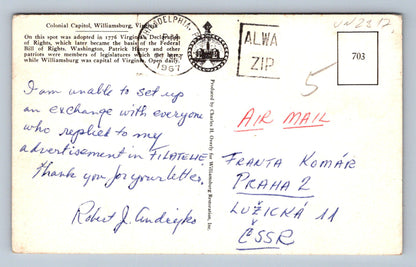 Colonial Capitol, Williamsburg, Virginia
On this spot was adopted in 1776 Virginia's Declaration
of Rights, which later became the basis of the Federal
Bill of Rights. Washington, Patrick Henry and other
patriots were members of legislatures which met here
while Williamsburg was capital of Virginia. Open daily.
ADELPHIA,
1967
ALWA
ZIP
5
703
I am unable to set up
an exchange with everyone
who replied to my
advertisement in FILATELIE.
Thank you for your letter.
Robert J.
Produced by Charles H. Overly for Williamsburg Restoration, Inc.
AIR MAIL
FRANTA KOMÁR
PRAHA 2
LUŽICKÁ 11
ČSSR